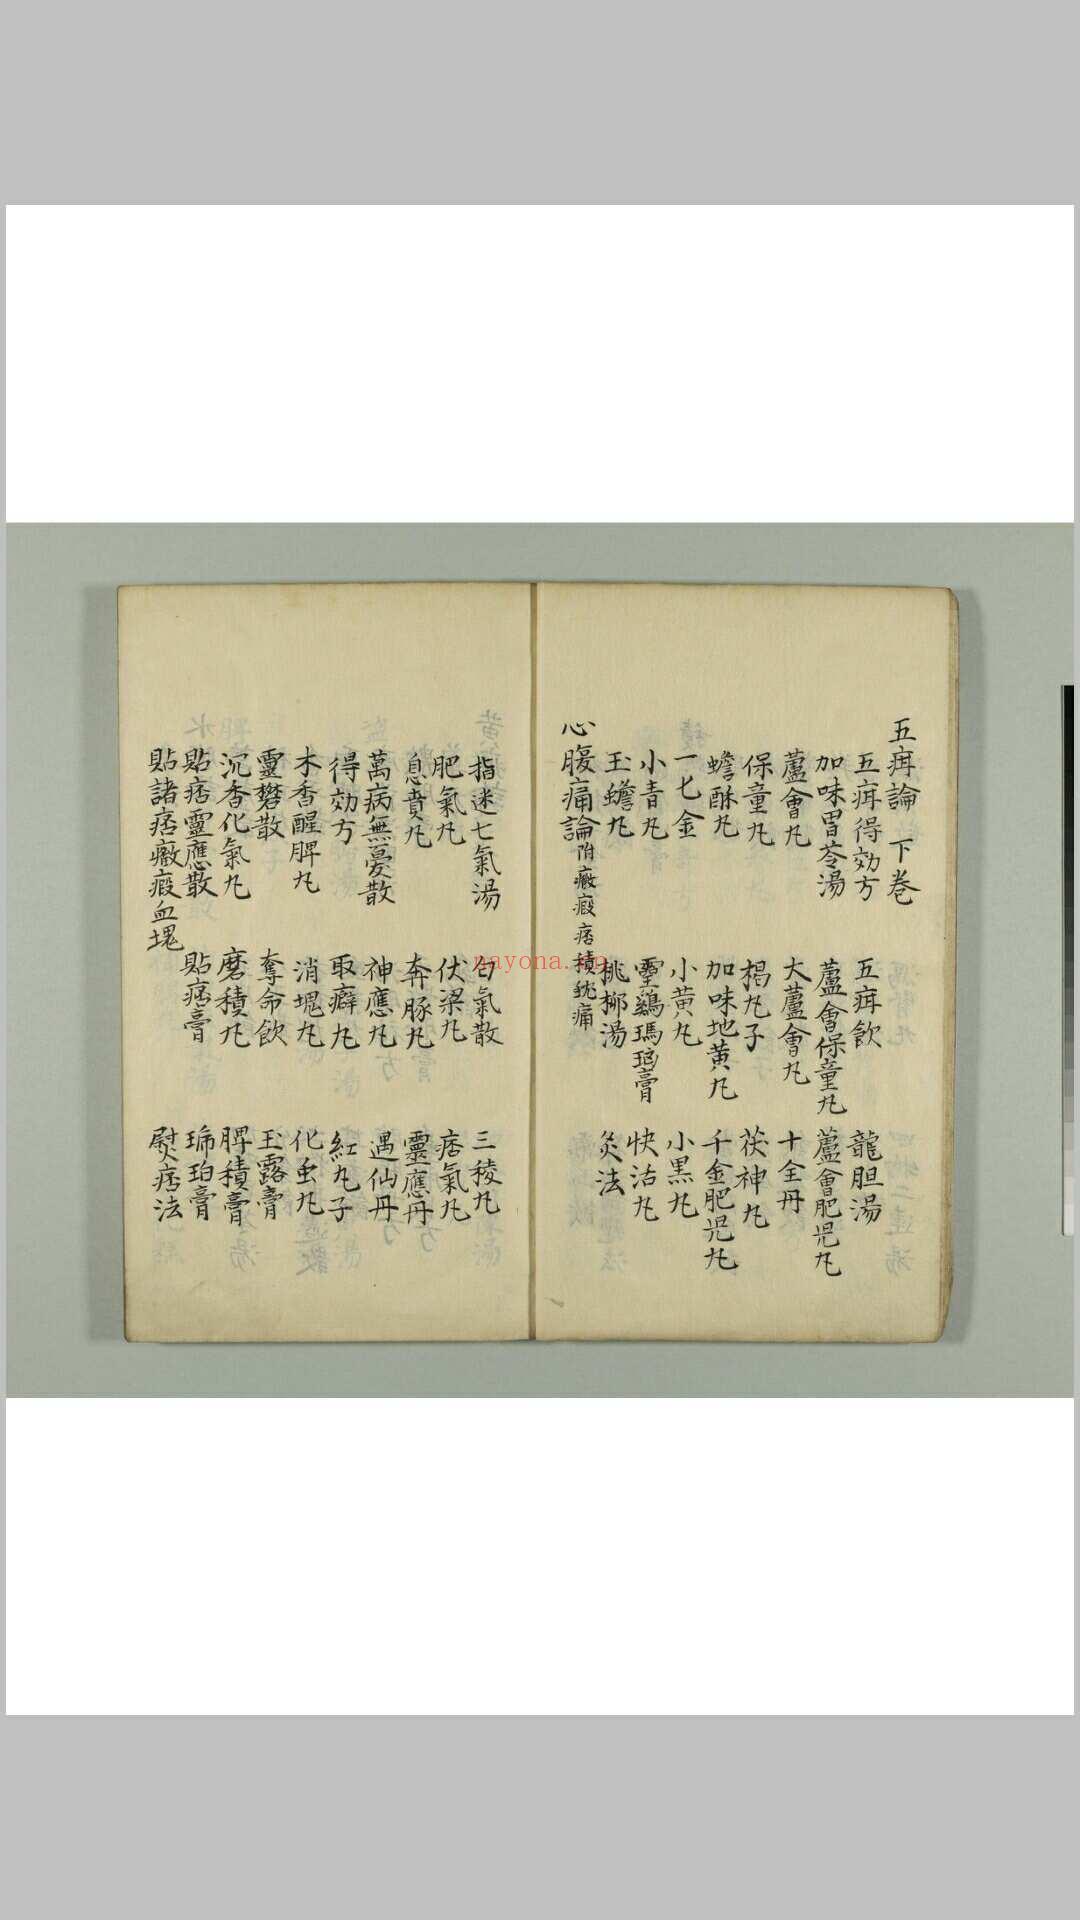 五疳論 下卷
五疳得効方 五疳飲 龍胆湯
加味胃苓湯 蘆會保童丸 蘆會肥児丸
蘆會丸 大蘆會丸 十全丹
保童丸 褐丸子 茯神丸
蟾酥丸 加味地黄丸 千金肥児丸
一七金 小黄丸 小黒丸
小青丸 靈鷄瑪瑙膏 快活丸
玉蟾丸 桃柳湯 灸法
心腹痛論 附癥瘕痞積
指迷七氣湯 匀氣散 三稜丸
肥氣丸 伏梁丸 痞氣丸
息賁丸 奔豚丸 靈應丹
萬病無憂散 神應丸 遇仙丹
得効方 取癖丸 紅丸子
木香醒脾丸 消塊丸 化虫丸
靈礬散 奪命飲 玉露膏
沉香化氣丸 磨積丸 脾積膏
貼痞靈應散 貼痞膏 琥珀膏
貼諸痞癥瘕血塊 熨痞法
nayona.cn